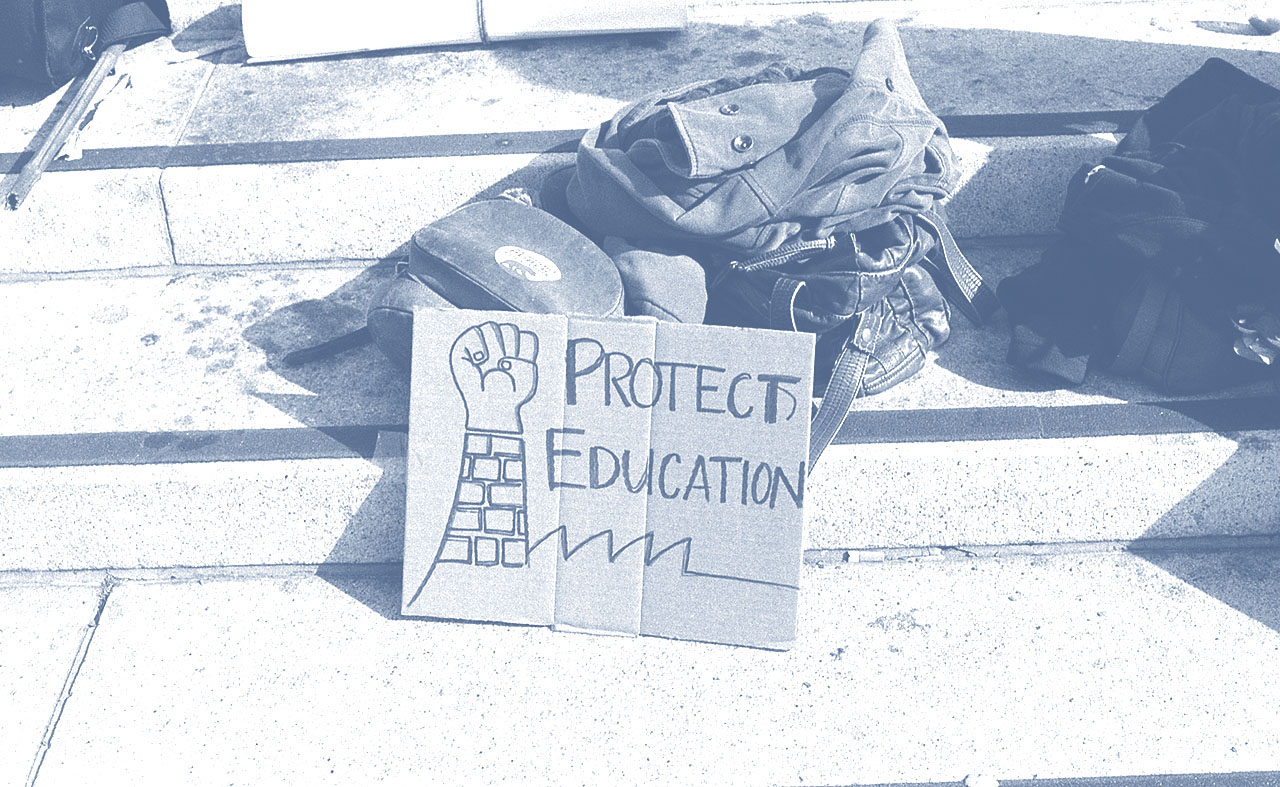 PROTECT
EDUCATION